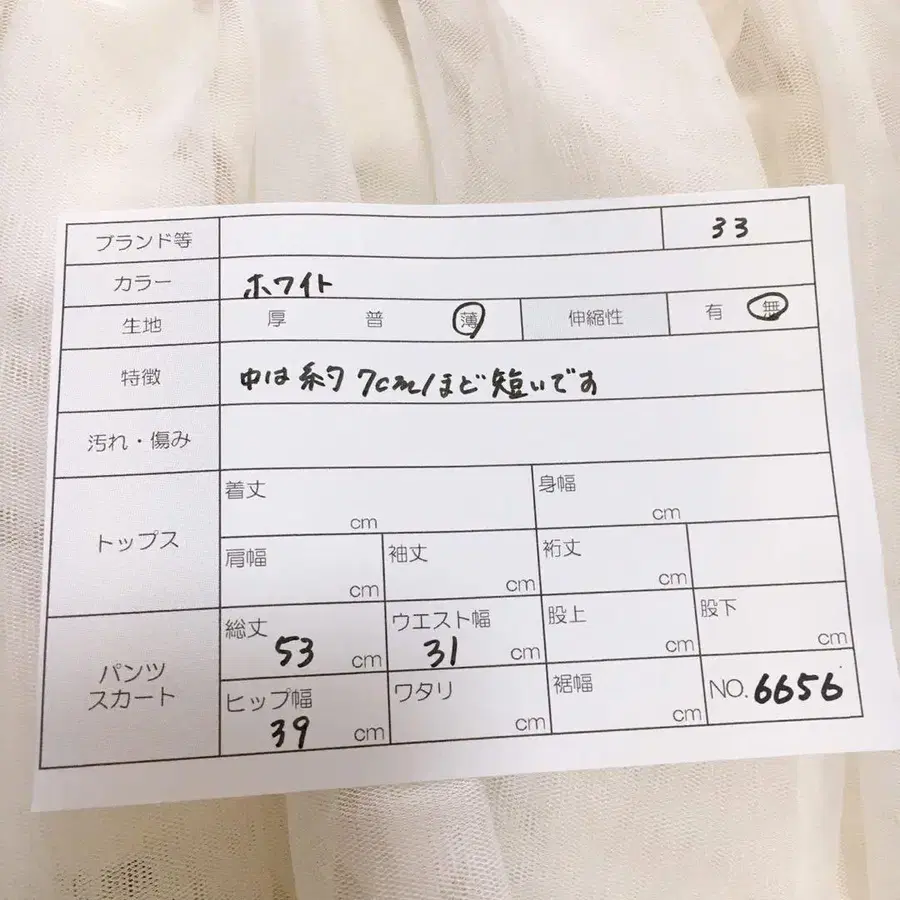 ブランド等 33
カラー ホワイト
生地 厚 普 薄 伸縮性 有 無
特徴 中は約7cmほど短いです
汚れ・傷み
トップス
着丈 cm 身幅 cm
肩幅 cm 袖丈 cm 裄丈 cm
パンツ
スカート
総丈 53 cm ウエスト幅 31 cm 股上 cm 股下 cm
ヒップ幅 39 cm ワタリ cm 裾幅 cm NO. 6656